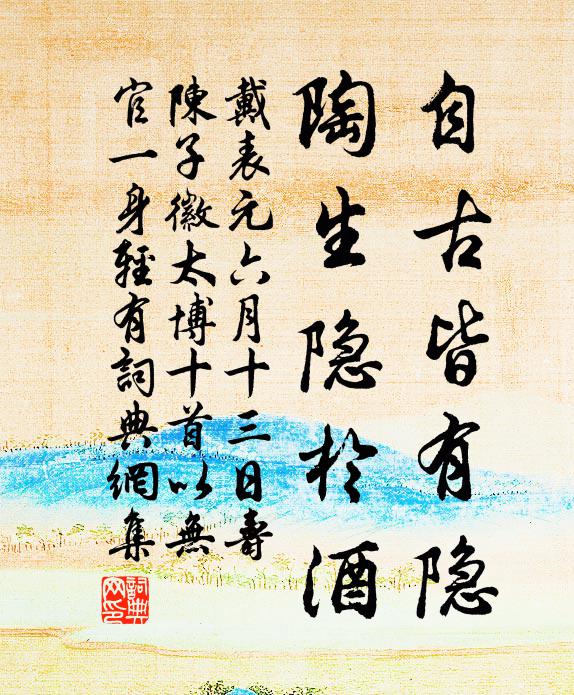 自古皆有隐
陶生隐於酒
戴表元六月十三日寿
陳子徽太博十首以無
官一身輕有詞典網集
詞典